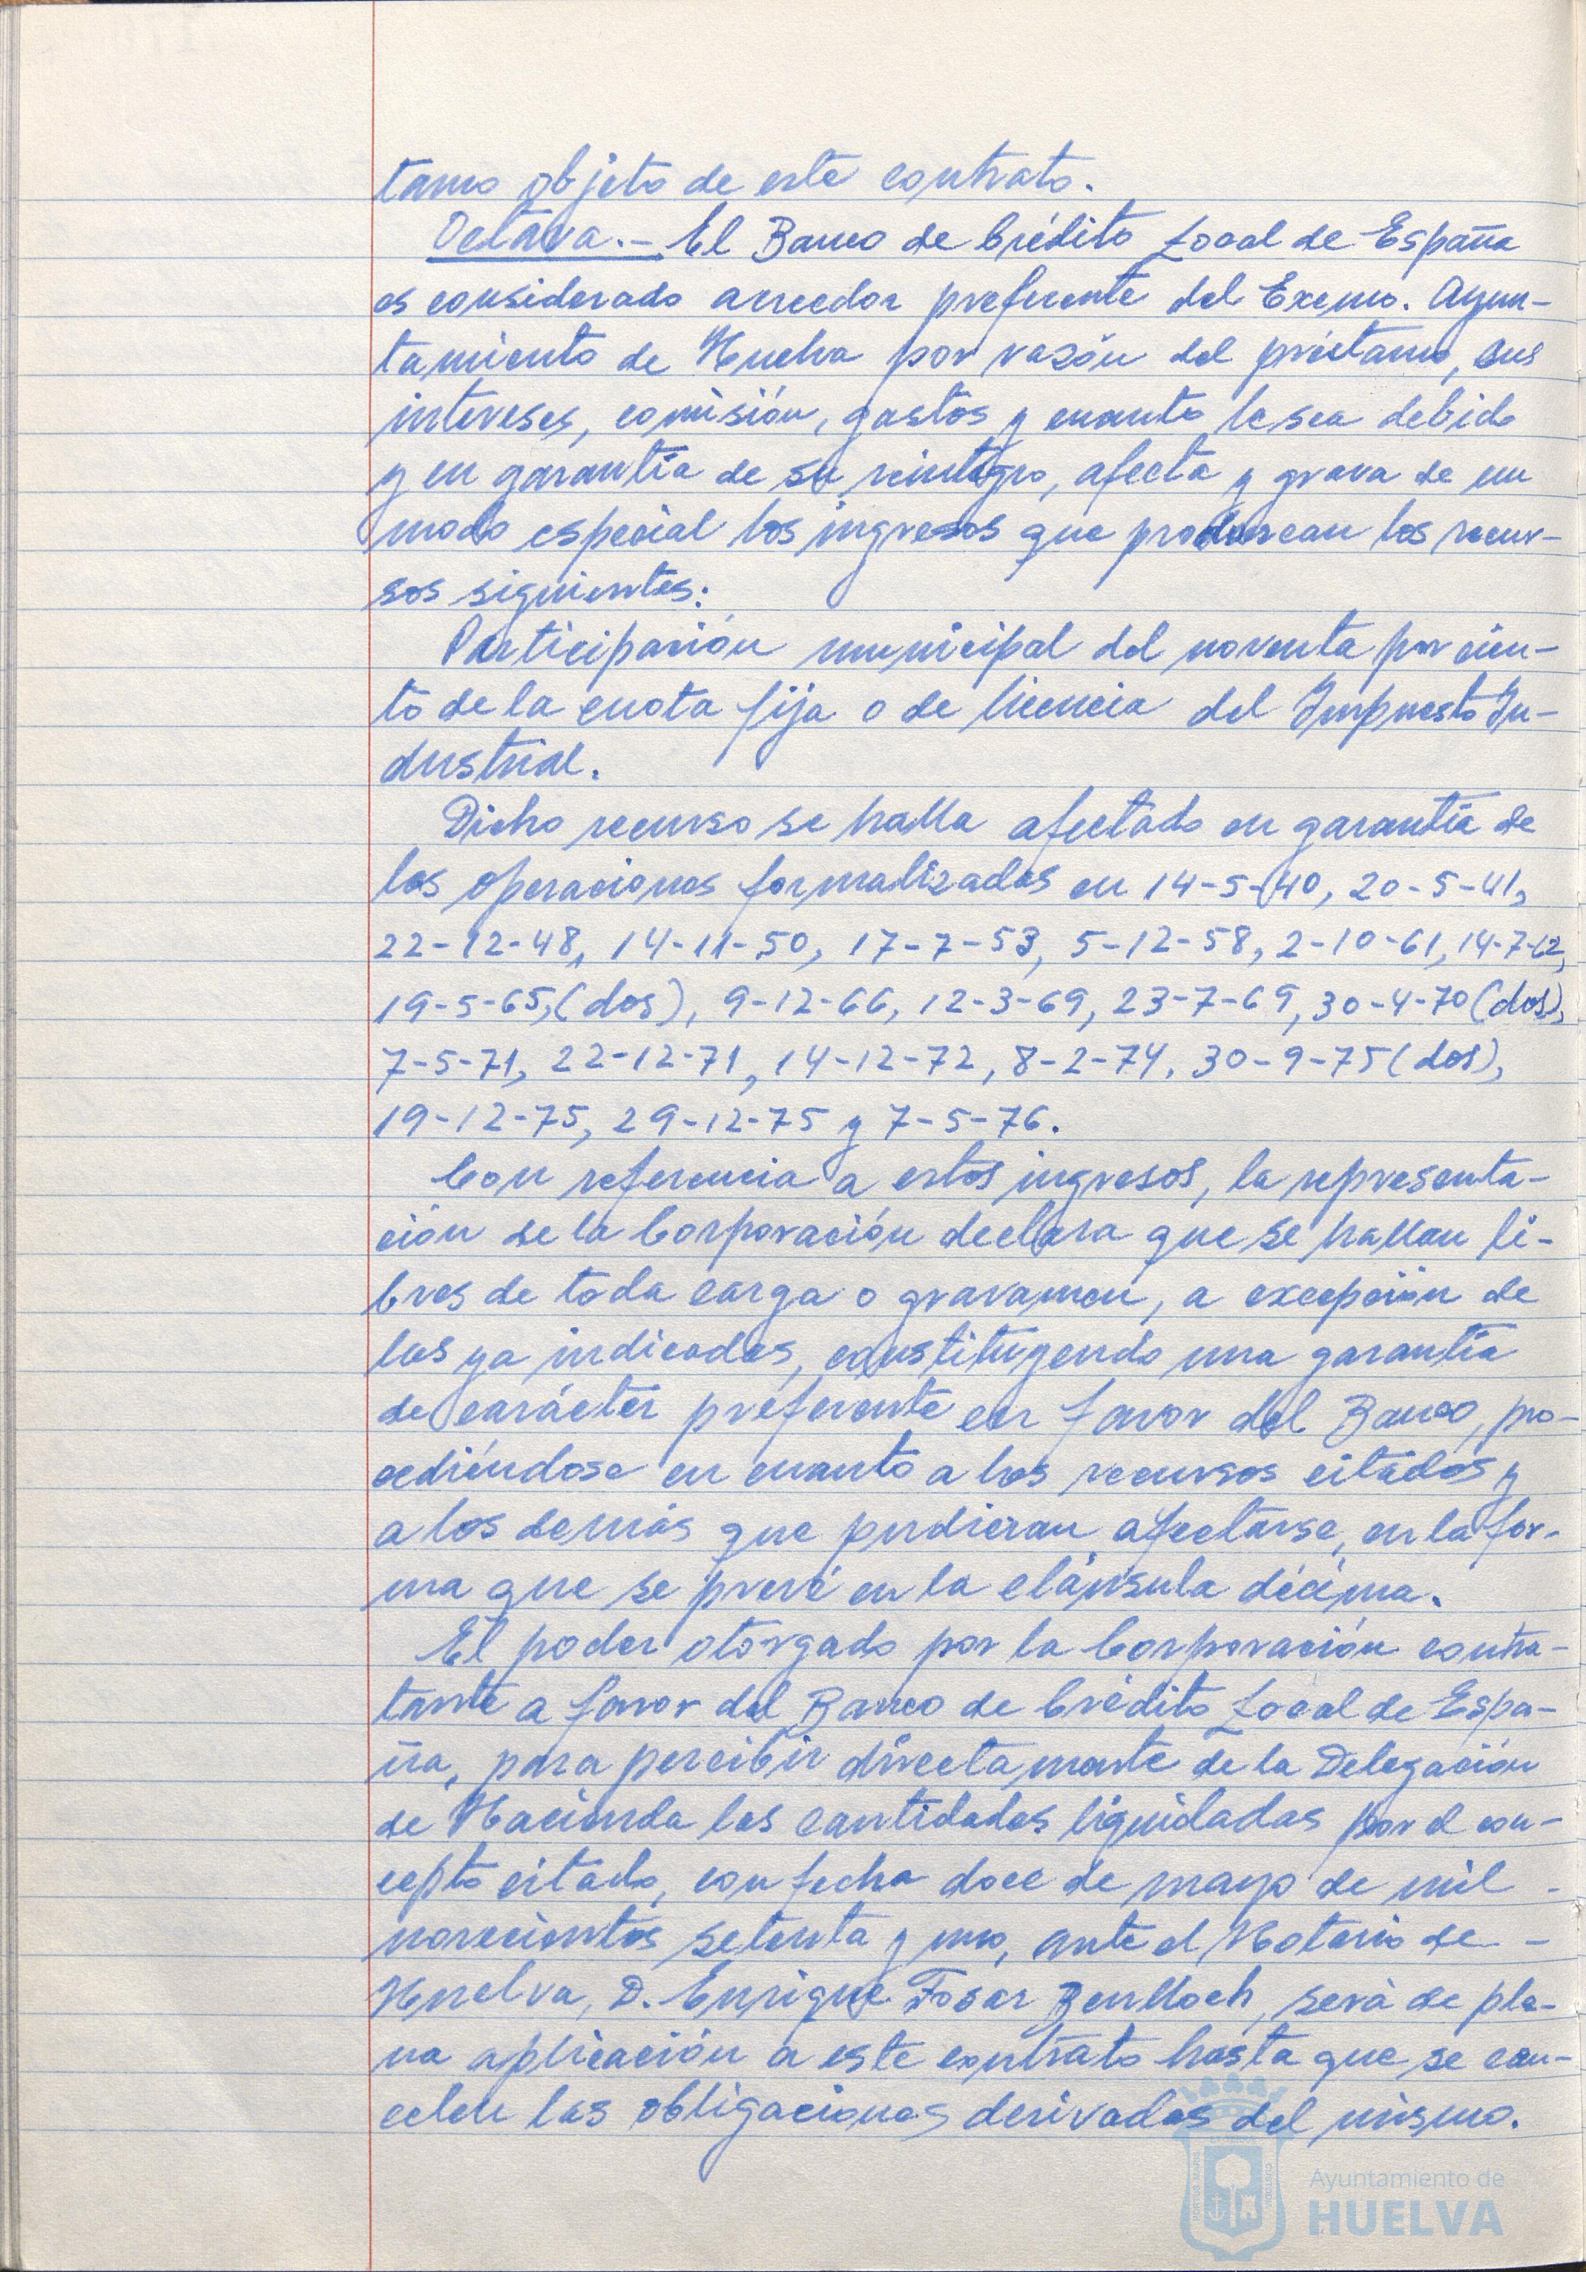 tamo objeto de este contrato.
Octava.- El Banco de Crédito Local de España
es considerado acreedor preferente del Excmo. Ayun-
tamiento de Huelva por razón del préstamo, sus
intereses, comisión, gastos y cuanto le sea debido
y en garantía de su reintegro, afecta y grava de un
modo especial los ingresos que produzcan los recur-
sos siguientes:
Participación municipal del noventa por cien-
to de la cuota fija o de licencia del Impuesto In-
dustrial.
Dicho recurso se halla afectado en garantía de
las operaciones formalizadas en 14-5-40, 20-5-41,
22-12-48, 14-11-50, 17-7-53, 5-12-58, 2-10-61, 14-7-62,
19-5-65,(dos), 9-12-66, 12-3-69, 23-7-69, 30-4-70(dos),
7-5-71, 22-12-71, 14-12-72, 8-2-74, 30-9-75(dos),
19-12-75, 29-12-75 y 7-5-76.
Con referencia a estos ingresos, la representa-
ción de la Corporación declara que se hallan li-
bres de toda carga o gravamen, a excepción de
las ya indicadas, constituyendo una garantía
de carácter preferente en favor del Banco, pro-
cediéndose en cuanto a los recursos citados y
a los demás que pudieran afectarse, en la for-
ma que se prevé en la cláusula décima.
El poder otorgado por la Corporación contra-
tante a favor del Banco de Crédito Local de Espa-
ña, para percibir directamente de la Delegación
de Hacienda las cantidades liquidadas por el con-
cepto citado, con fecha doce de mayo de mil -
novecientos setenta y uno, ante el Notario de -
Huelva, D. Enrique Fosar Benlloch, será de ple-
na aplicación a este contrato hasta que se can-
celen las obligaciones derivadas del mismo.
Ayuntamiento de
HUELVA